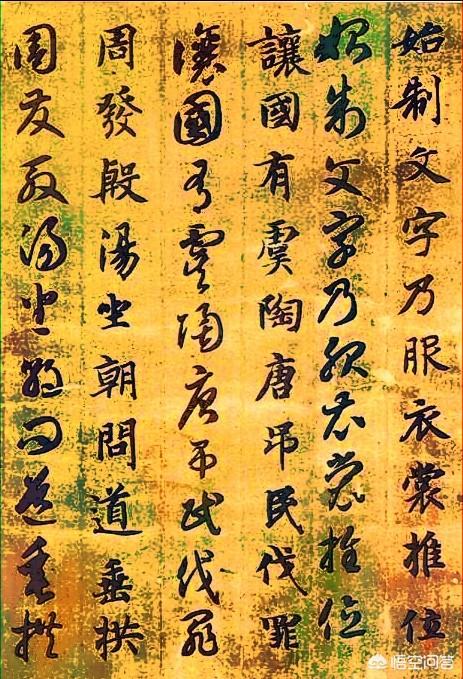 始制文字乃服衣裳推位
始制文字乃服衣裳推位
讓國有虞陶唐吊民伐罪
讓國有虞陶唐吊民伐罪
周發殷湯坐朝問道垂拱
周發殷湯坐朝問道垂拱
悟空问答